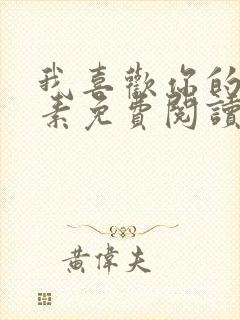 我喜歡你的
素免費閱讀
黃偉夫